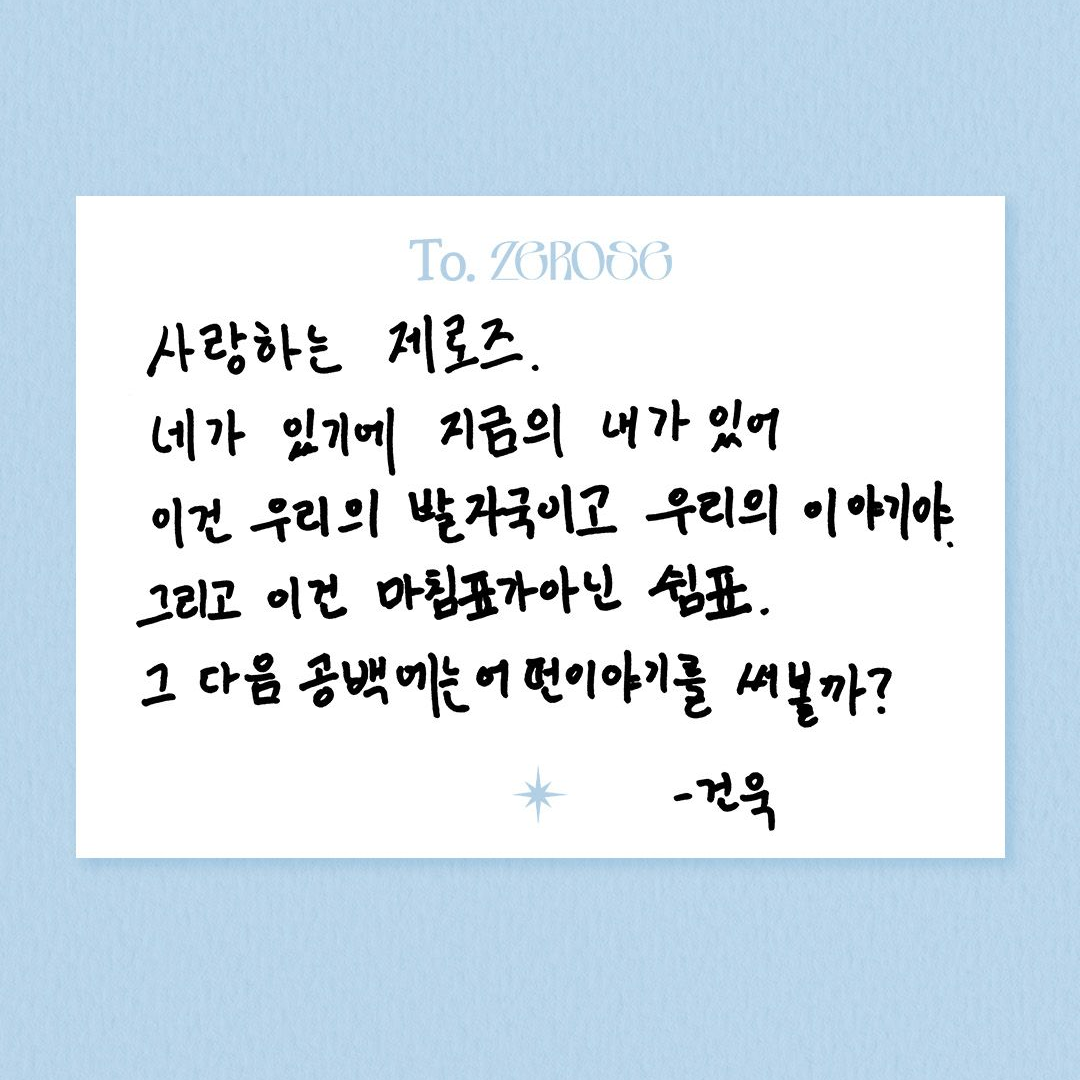 To. ZEROSE
사랑하는 제로즈.
네가 있기에 지금의 내가 있어
이건 우리의 발자국이고 우리의 이야기야.
그리고 이건 마침표가아닌 쉼표.
그 다음 공백에는 어떤이야기를 써볼까?
-건욱